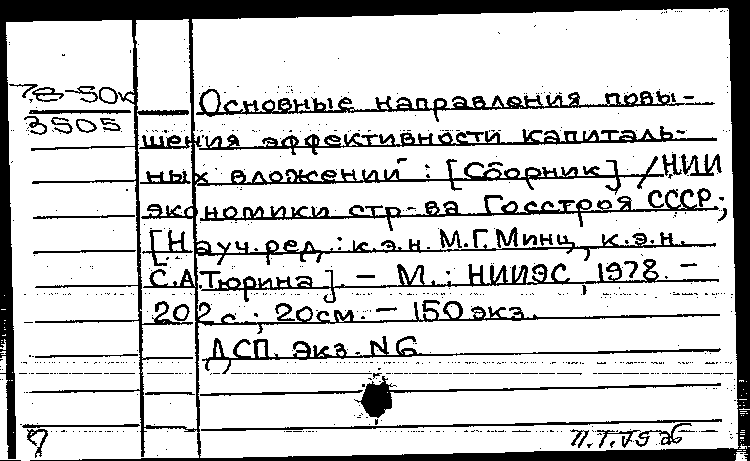 78-50к
3505
Основные направления повы-
шения эффективности капиталь-
ных вложений : [Сборник] / НИИ
экономики стр-ва Госстроя СССР ;
[Науч. ред. : к.э.н. М.Г. Минц, к.э.н.
С.А. Тюрина]. - М. : НИИЭС, 1978. -
202 с. ; 20 см. - 150 экз.
ДСП. Экз. N 6